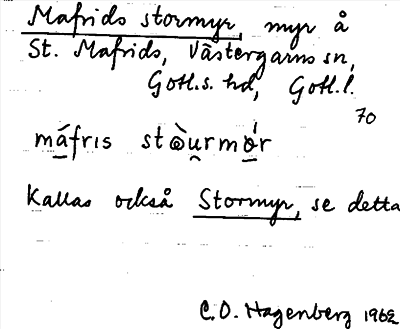 Mafrids stormyr, myr å
St. Mafrids, Västergarns sn,
Gotl.s. hd, Gotl.l.
70
máfris stòurmør
Kallas också Stormyr, se detta
C.O. Hagenberg 1962